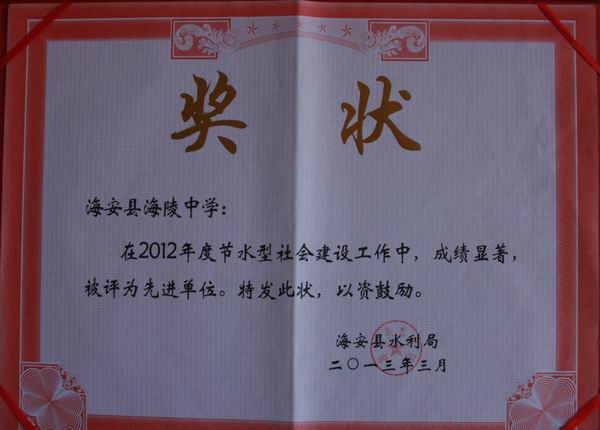 奖状
海安县海陵中学：
在2012年度节水型社会建设工作中，成绩显著，
被评为先进单位。特发此状，以资鼓励。
海安县水利局
二〇一三年三月